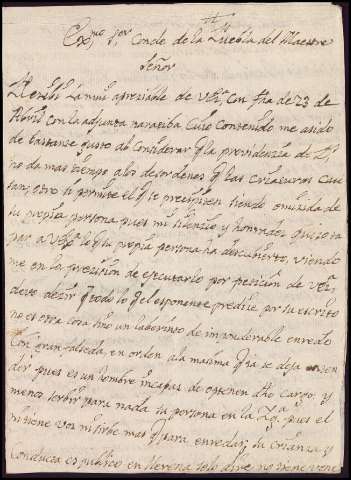 Exmo Sor Conde de la Puebla del Maestre
Señor
Recibi la mui apreciable de VEa. con fha de 23 de
con la adjunta narratiba cuio contenido me a sido
de bastante gusto de considerar q la providenzia de Ds
no da mas tiempo a los desordenes q las criaturas
otro permite el q te precipiten siendo omizida de
su propia persona pues mi silenzio y honrradez quiso ta
par a VEa. lo q su propia persona ha descubierto, viendo
me en la precision de ejecutarlo por peticion de VEa.
devo dezir q todo lo q el esponente predize por su escrito
no es otra cosa sino un laberinto de imponderable enredo
con gran falsedad, en orden a la maxima q ia se deja enten
der pues es un hombre incapas de obtener dho cargo; y
menos serbir para nada su persona en la pues el
ni tiene vos ni sirbe mas q para enredar; su crianza y
conducta es publico en Llerena solo dire no tiene